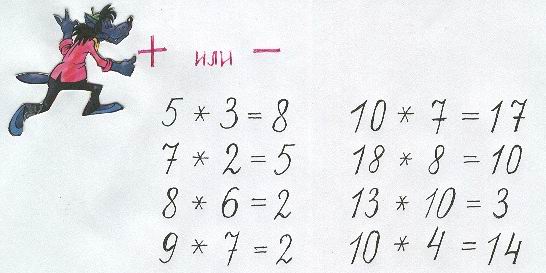 + или −
5 * 3 = 8
7 * 2 = 5
8 * 6 = 2
9 * 7 = 2
10 * 7 = 17
18 * 8 = 10
13 * 10 = 3
10 * 4 = 14